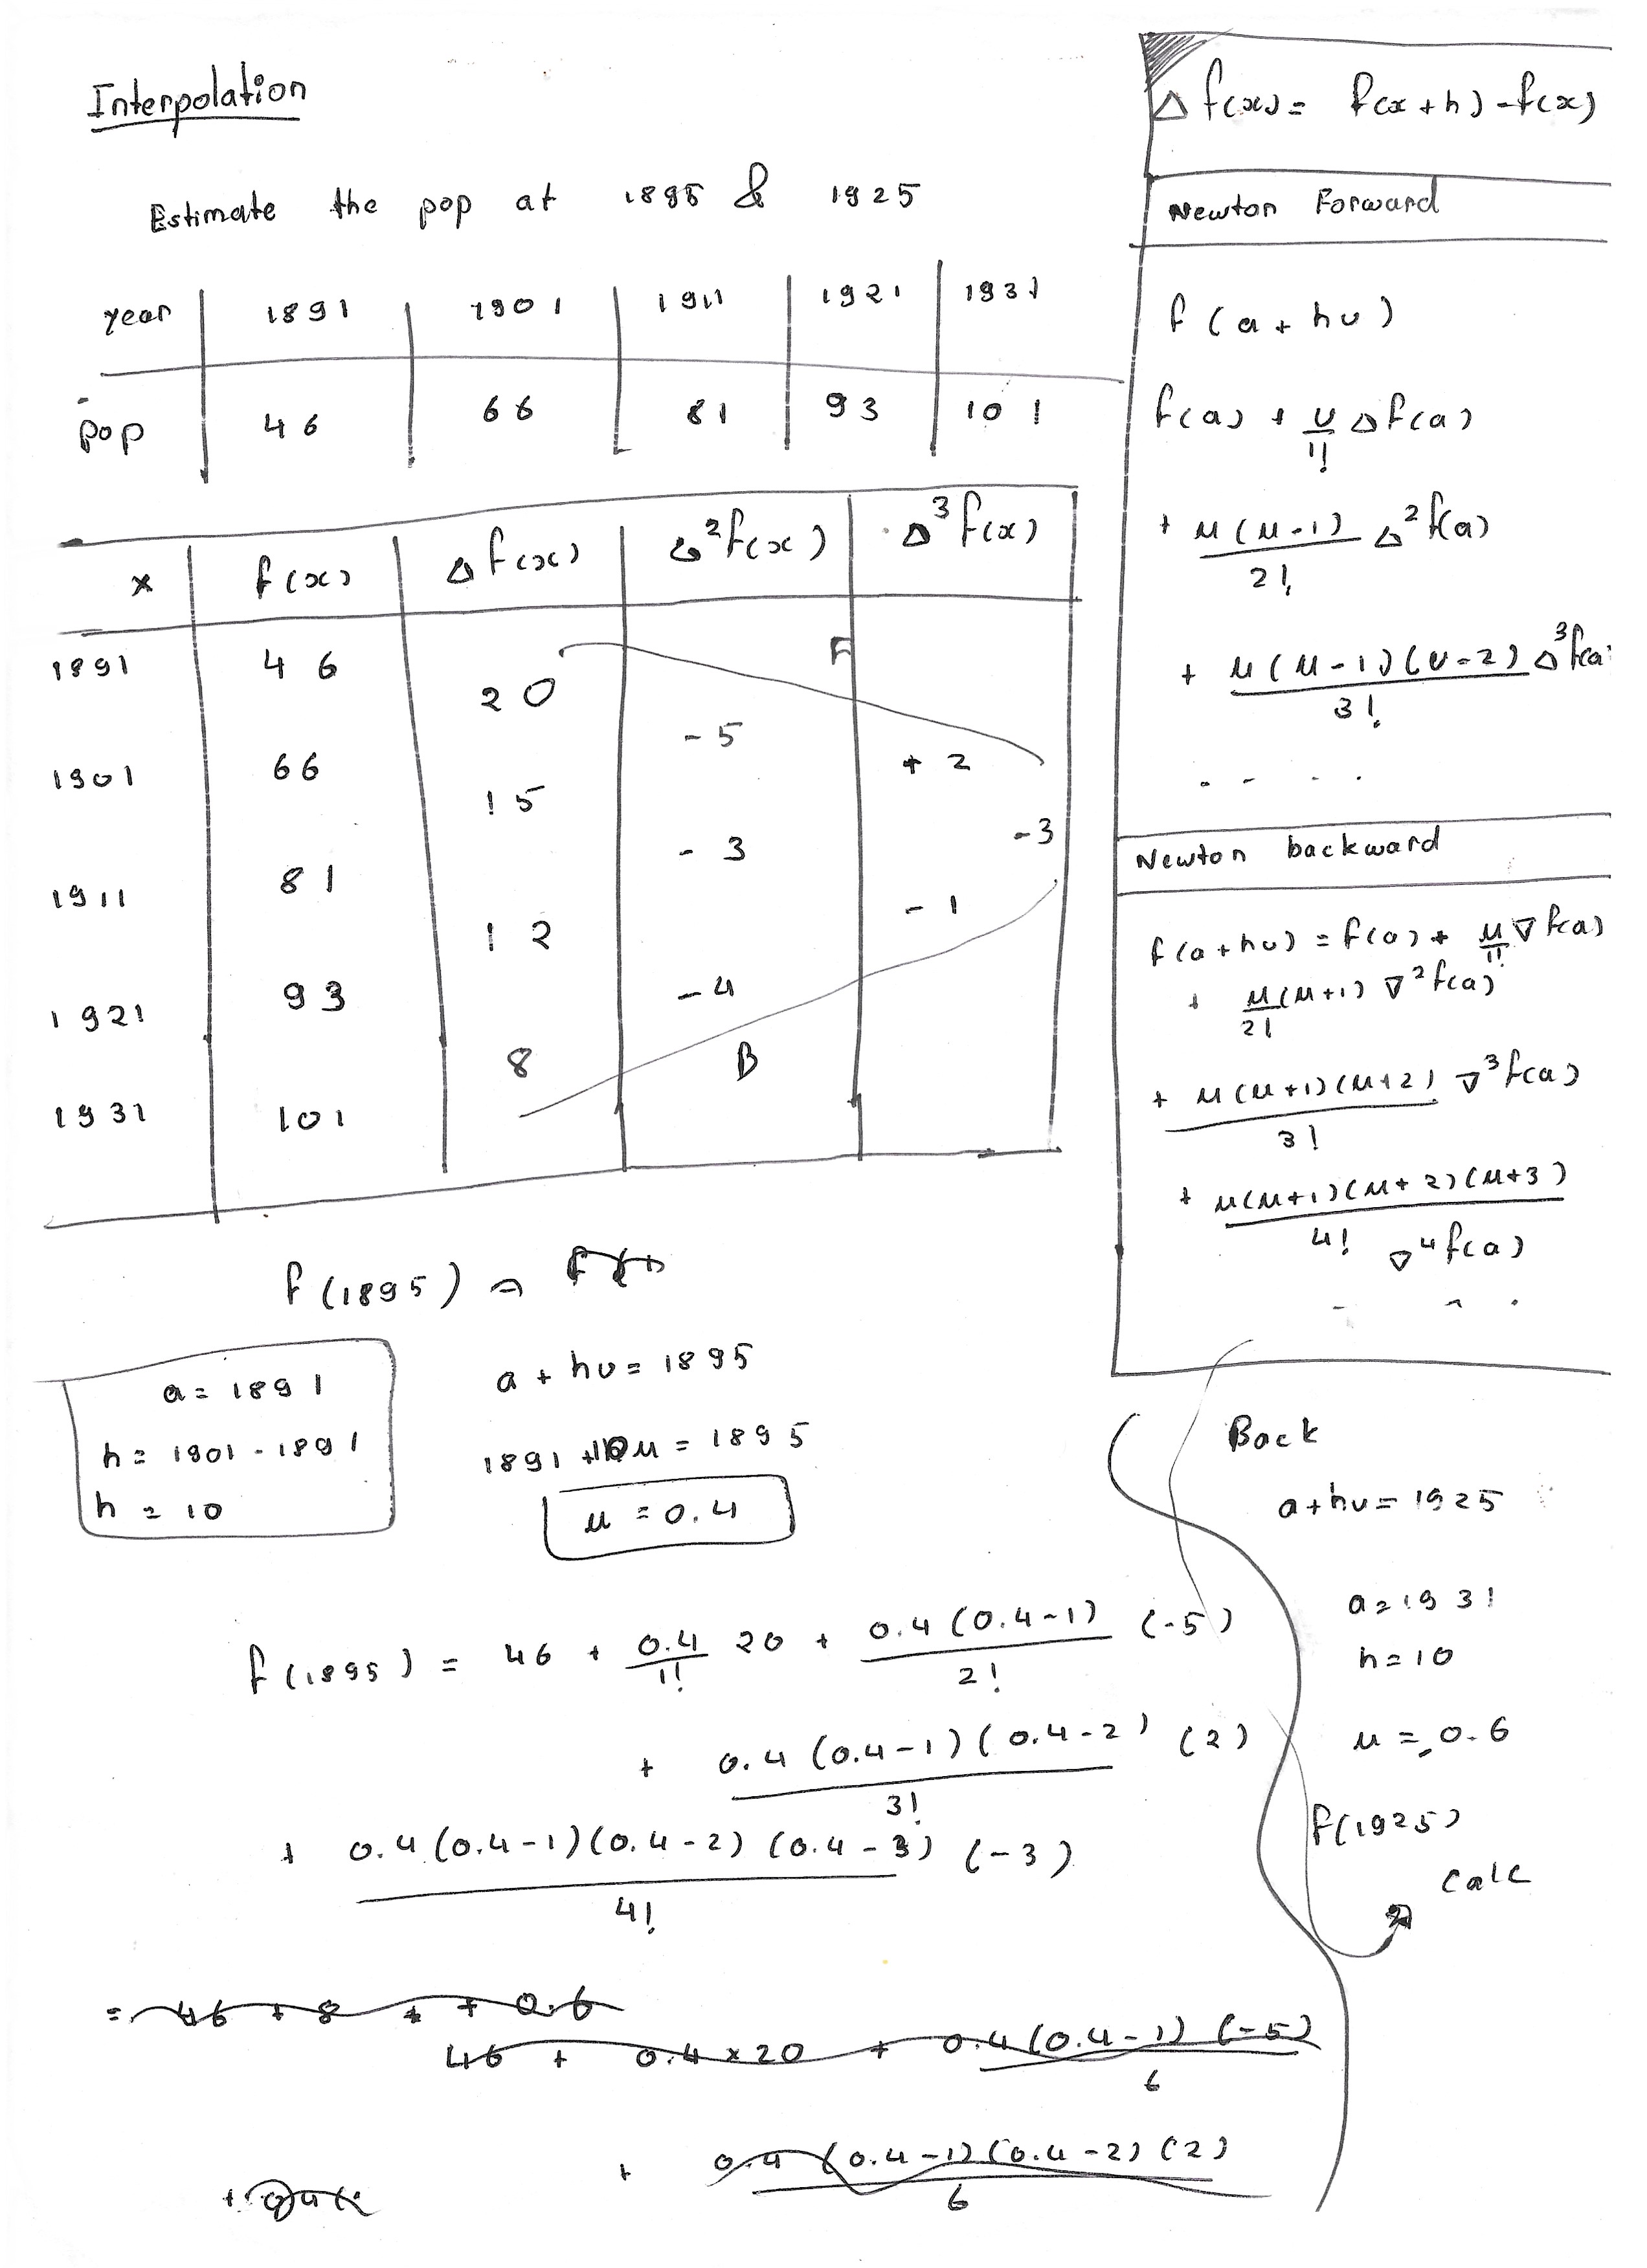 Interpolation
Estimate the pop at 1895 & 1925
year 1891 1901 1911 1921 1931
pop 46 66 81 93 101
x f(x) Δf(x) Δ²f(x) Δ³f(x)
1891 46
20 F
-5
1901 66 +2
15
-3 -3
1911 81
12 -1
-4
1921 93
8 B
1931 101
f(1895) =
a = 1891
h = 1901 - 1891
h = 10
a + hu = 1895
1891 + 10u = 1895
u = 0.4
f(1895) = 46 + 0.4/1! 20 + 0.4(0.4-1)/2! (-5)
+ 0.4(0.4-1)(0.4-2)/3! (2)
+ 0.4(0.4-1)(0.4-2)(0.4-3)/4! (-3)
= 46 + 8 + + 0.6
46 + 0.4×20 + 0.4(0.4-1)(-5)/6
+ 0.4(0.4-1)(0.4-2)(2)/6
Δf(x) = f(x+h) - f(x)
Newton Forward
f(a+hu)
f(a) + u/1! Δf(a)
+ u(u-1)/2! Δ²f(a)
+ u(u-1)(u-2)/3! Δ³f(a)
. . . .
Newton backward
f(a+hu) = f(a) + u/1! ∇f(a)
+ u(u+1)/2! ∇²f(a)
+ u(u+1)(u+2)/3! ∇³f(a)
+ u(u+1)(u+2)(u+3)/4!
∇⁴f(a)
. . .
Back
a+hu = 1925
a = 1931
h = 10
u = -0.6
f(1925)
calc